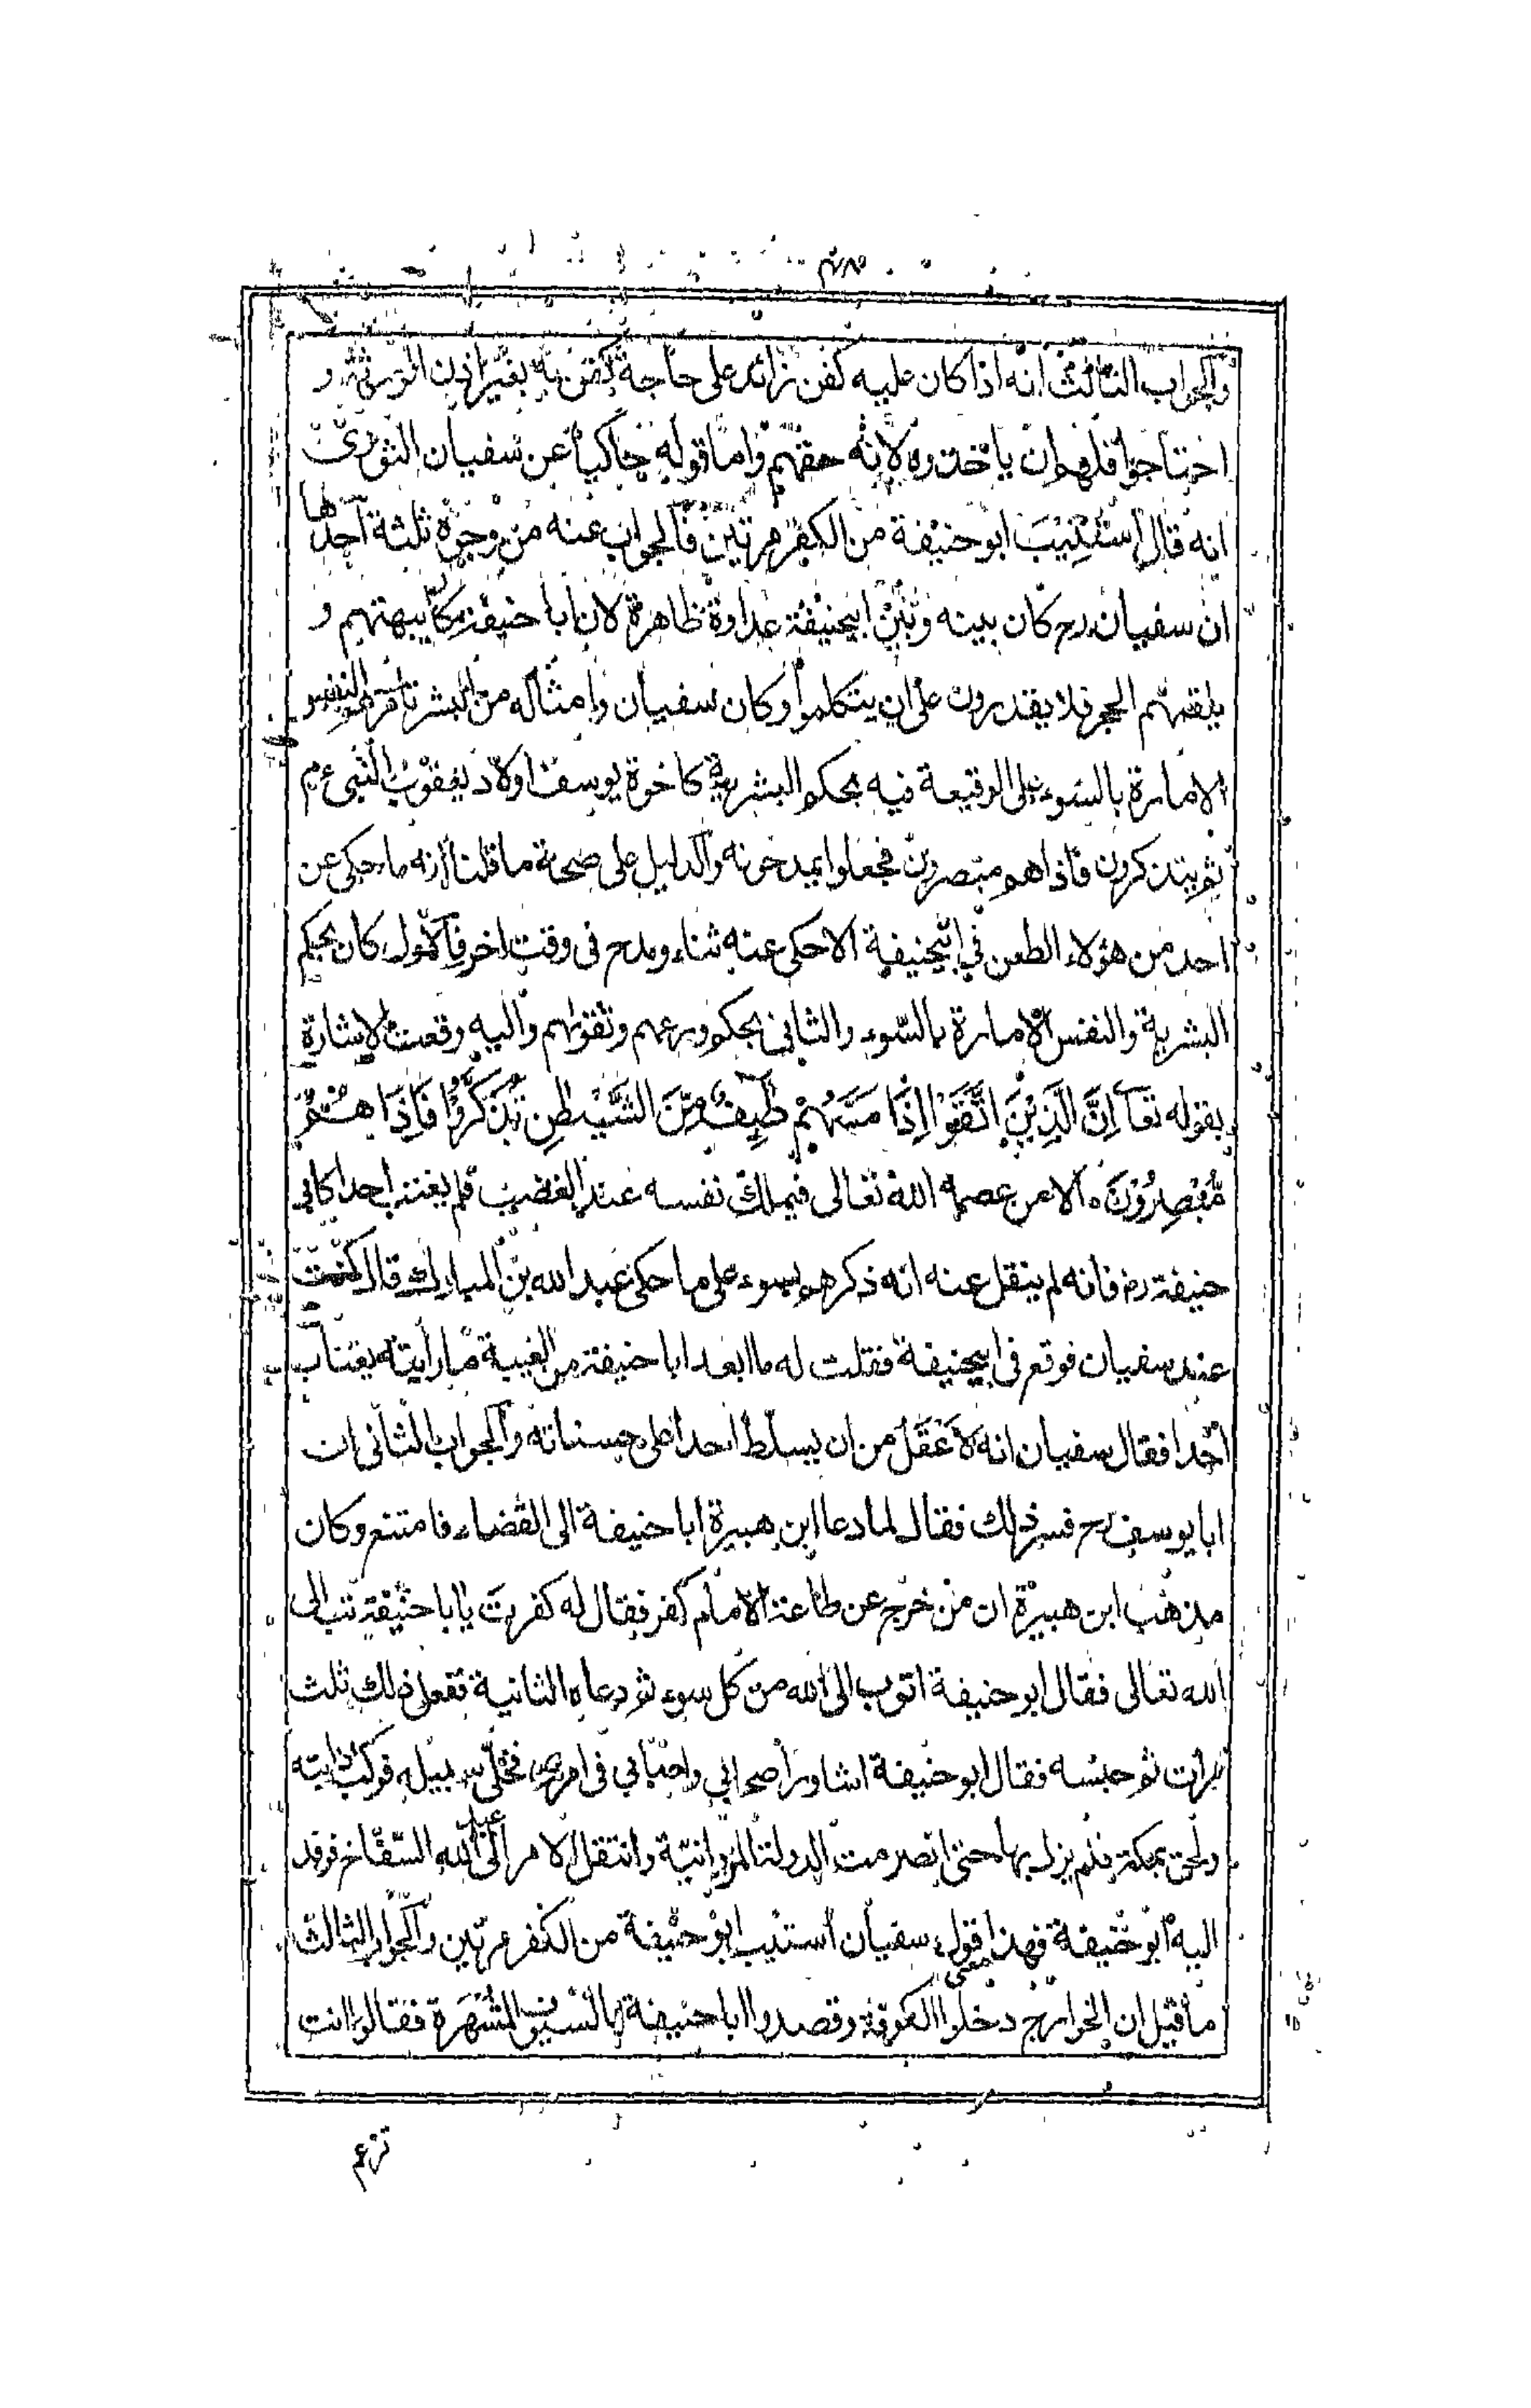 والجواب الثالث انه اذا كان عليه كفن زائد على حاجة كفن به بغير اذن الورثة و
احتاجوا فلهم ان ياخذوه لانه حقهم واما قوله حاكيا عن سفيان الثوري
انه قال استتيب ابو حنيفة من الكفر مرتين فالجواب عنه من وجوه ثلثة احدها
ان سفيان رح كان بينه وبين ابيحنيفة عداوة ظاهرة لان ابا حنيفة كان يبهتهم و
يلقمهم الحجر فلا يقدرون على ان يتكلموا وكان سفيان وامثاله من البشر تامرهم النفس
الامارة بالسوء على الوقيعة فيه بحكم البشرية كاخوة يوسف اولاد يعقوب النبي عم
ثم يتذكرون فاذا هم مبصرون فجعلوا يمدحونه والدليل على صحة ما قلنا انه ما حكى عن
احد من هؤلاء الطعن في ابيحنيفة الا حكى عنه ثناء ومدح في وقت اخر فالاول كان بحكم
البشرية والنفس الامارة بالسوء والثاني بحكم ورعهم وتقواهم واليه وقعت الاشارة
بقوله تعا اِنَّ الَّذِيْنَ اتَّقَوْا اِذَا مَسَّهُمْ طٰٓئِفٌ مِّنَ الشَّيْطٰنِ تَذَكَّرُوْا فَاِذَا هُمْ
مُّبْصِرُوْنَ ه الا من عصمه الله تعالى فيملك نفسه عند الغضب فلم يغتب احدا كابي
حنيفة رض فانه لم ينقل عنه انه ذكرهم بسوء على ما حكى عبد الله بن المبارك قال كنت
عند سفيان فوقع في ابيحنيفة فقلت له ما ابعد ابا حنيفة من الغيبة ما رأيته يغتاب
احدا فقال سفيان انه لاعقل من ان يسلط احدا على حسناته والجواب الثاني ان
ابا يوسف رح فسر ذلك فقال لما دعا ابن هبيرة ابا حنيفة الى القضاء فامتنع وكان
مذهب ابن هبيرة ان من خرج عن طاعة الامام كفر فقال له كفرت يا با حنيفة تب الى
الله تعالى فقال ابو حنيفة اتوب الى الله من كل سوء ثم دعاه الثانية ففعل ذلك ثلث
مرات ثم حبسه فقال ابو حنيفة اشاور اصحابي واحبابي في امري فخلى سبيله فركب دابته
ولحق بمكة فلم يزل بها حتى انصرمت الدولة المروانية وانتقل الامر الى عبد الله السفاح فوفد
اليه ابو حنيفة فهذا معنى قول سفيان استتيب ابو حنيفة من الكفر مرتين والجواب الثالث
ما قيل ان الخوارج دخلوا الكوفة وقصدوا ابا حنيفة بالسيوف المشهرة فقالوا انت
تزعم